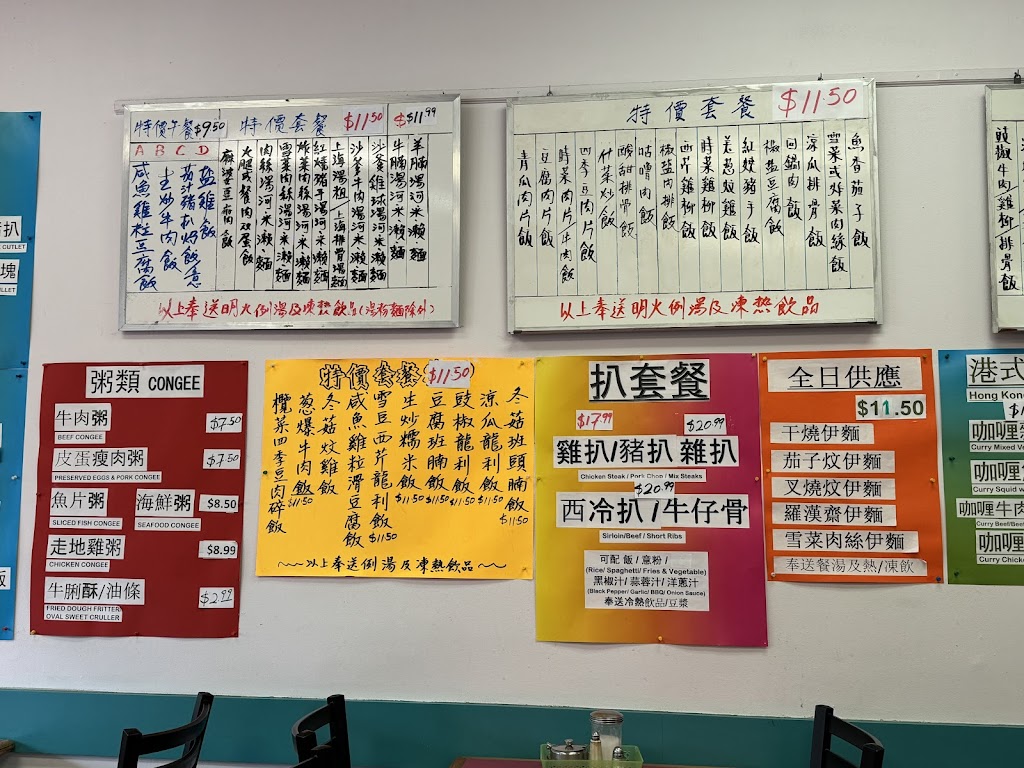 特價午餐$9.50
特價套餐
$11.50
$11.99
A B C D
鹽雞飯
茄汁豬扒飯/意
生炒牛肉飯
咸魚雞粒豆腐飯
羊腩湯河.米.瀨.麵
牛腩湯河米瀨麵
沙爹雞球湯河米瀨麵
沙爹牛肉湯河米瀨麵
上海湯粗/上海排骨湯麵
紅燒豬手湯河米瀨麵
雪菜肉絲湯河.米瀨麵
肉絲湯河.米.瀨.麵
火腿或餐肉双蛋飯
麻婆豆腐肉飯
以上奉送明火例湯及凍熱飲品(湯粉麵除外)
特價套餐
$11.50
魚香茄子飯
雪菜或炸菜肉絲飯
涼瓜排骨飯
回鍋肉飯
椒盐豆腐飯
紅炆豬手飯
姜葱炆雞飯
時菜雞柳飯
西芹雞柳飯
椒盐肉排飯
咕嚕肉飯
酸甜排骨飯
什菜炒飯
四季豆肉片飯
時菜肉片/牛肉飯
豆腐肉片飯
青瓜肉片飯
以上奉送明火例湯及凍熱飲品
豉椒牛肉/雞柳/排骨飯
粥類 CONGEE
牛肉粥
$7.50
BEEF CONGEE
皮蛋瘦肉粥
$7.50
PRESERVED EGGS & PORK CONGEE
魚片粥 海鮮粥
$8.50
SLICED FISH CONGEE SEAFOOD CONGEE
走地雞粥
$8.99
CHICKEN CONGEE
牛脷酥/油條
$2.99
FRIED DOUGH FRITTER
OVAL SWEET CRULLER
特價套餐
$11.50
冬菇班頭腩飯
$11.50
涼瓜龍利飯
$11.50
豉椒龍利飯
$11.50
豆腐班腩飯
$11.50
生炒糯米飯
$11.50
雪豆西芹龍利飯
$11.50
咸魚雞粒滑豆腐飯
冬菇炆雞飯
葱爆牛肉飯
$11.50
欖菜四季豆肉碎飯
以上奉送例湯及凍熱飲品
扒套餐
$17.99
$20.99
雞扒/豬扒 雜扒
Chicken Steak / Pork Chop / Mix Steaks
$20.99
西冷扒/牛仔骨
Sirloin/Beef / Short Ribs
可配 飯 / 意粉 /
(Rice/ Spaghetti/ Fries & Vegetable)
黑椒汁/ 蒜蓉汁/ 洋蔥汁
(Black Pepper/ Garlic/ BBQ/ Onion Sauce)
奉送冷熱飲品/豆漿
全日供應
$11.50
干燒伊麵
茄子炆伊麵
叉燒炆伊麵
羅漢齋伊麵
雪菜肉絲伊麵
奉送餐湯及熱/凍飲
港式
Hong Kong
咖喱
Curry Mixed Ve
咖喱
Curry Squid w
咖喱牛肉
Curry Beef/Beef
咖喱
Curry Chicken
豬扒
CUTLET
塊
LLET
飯